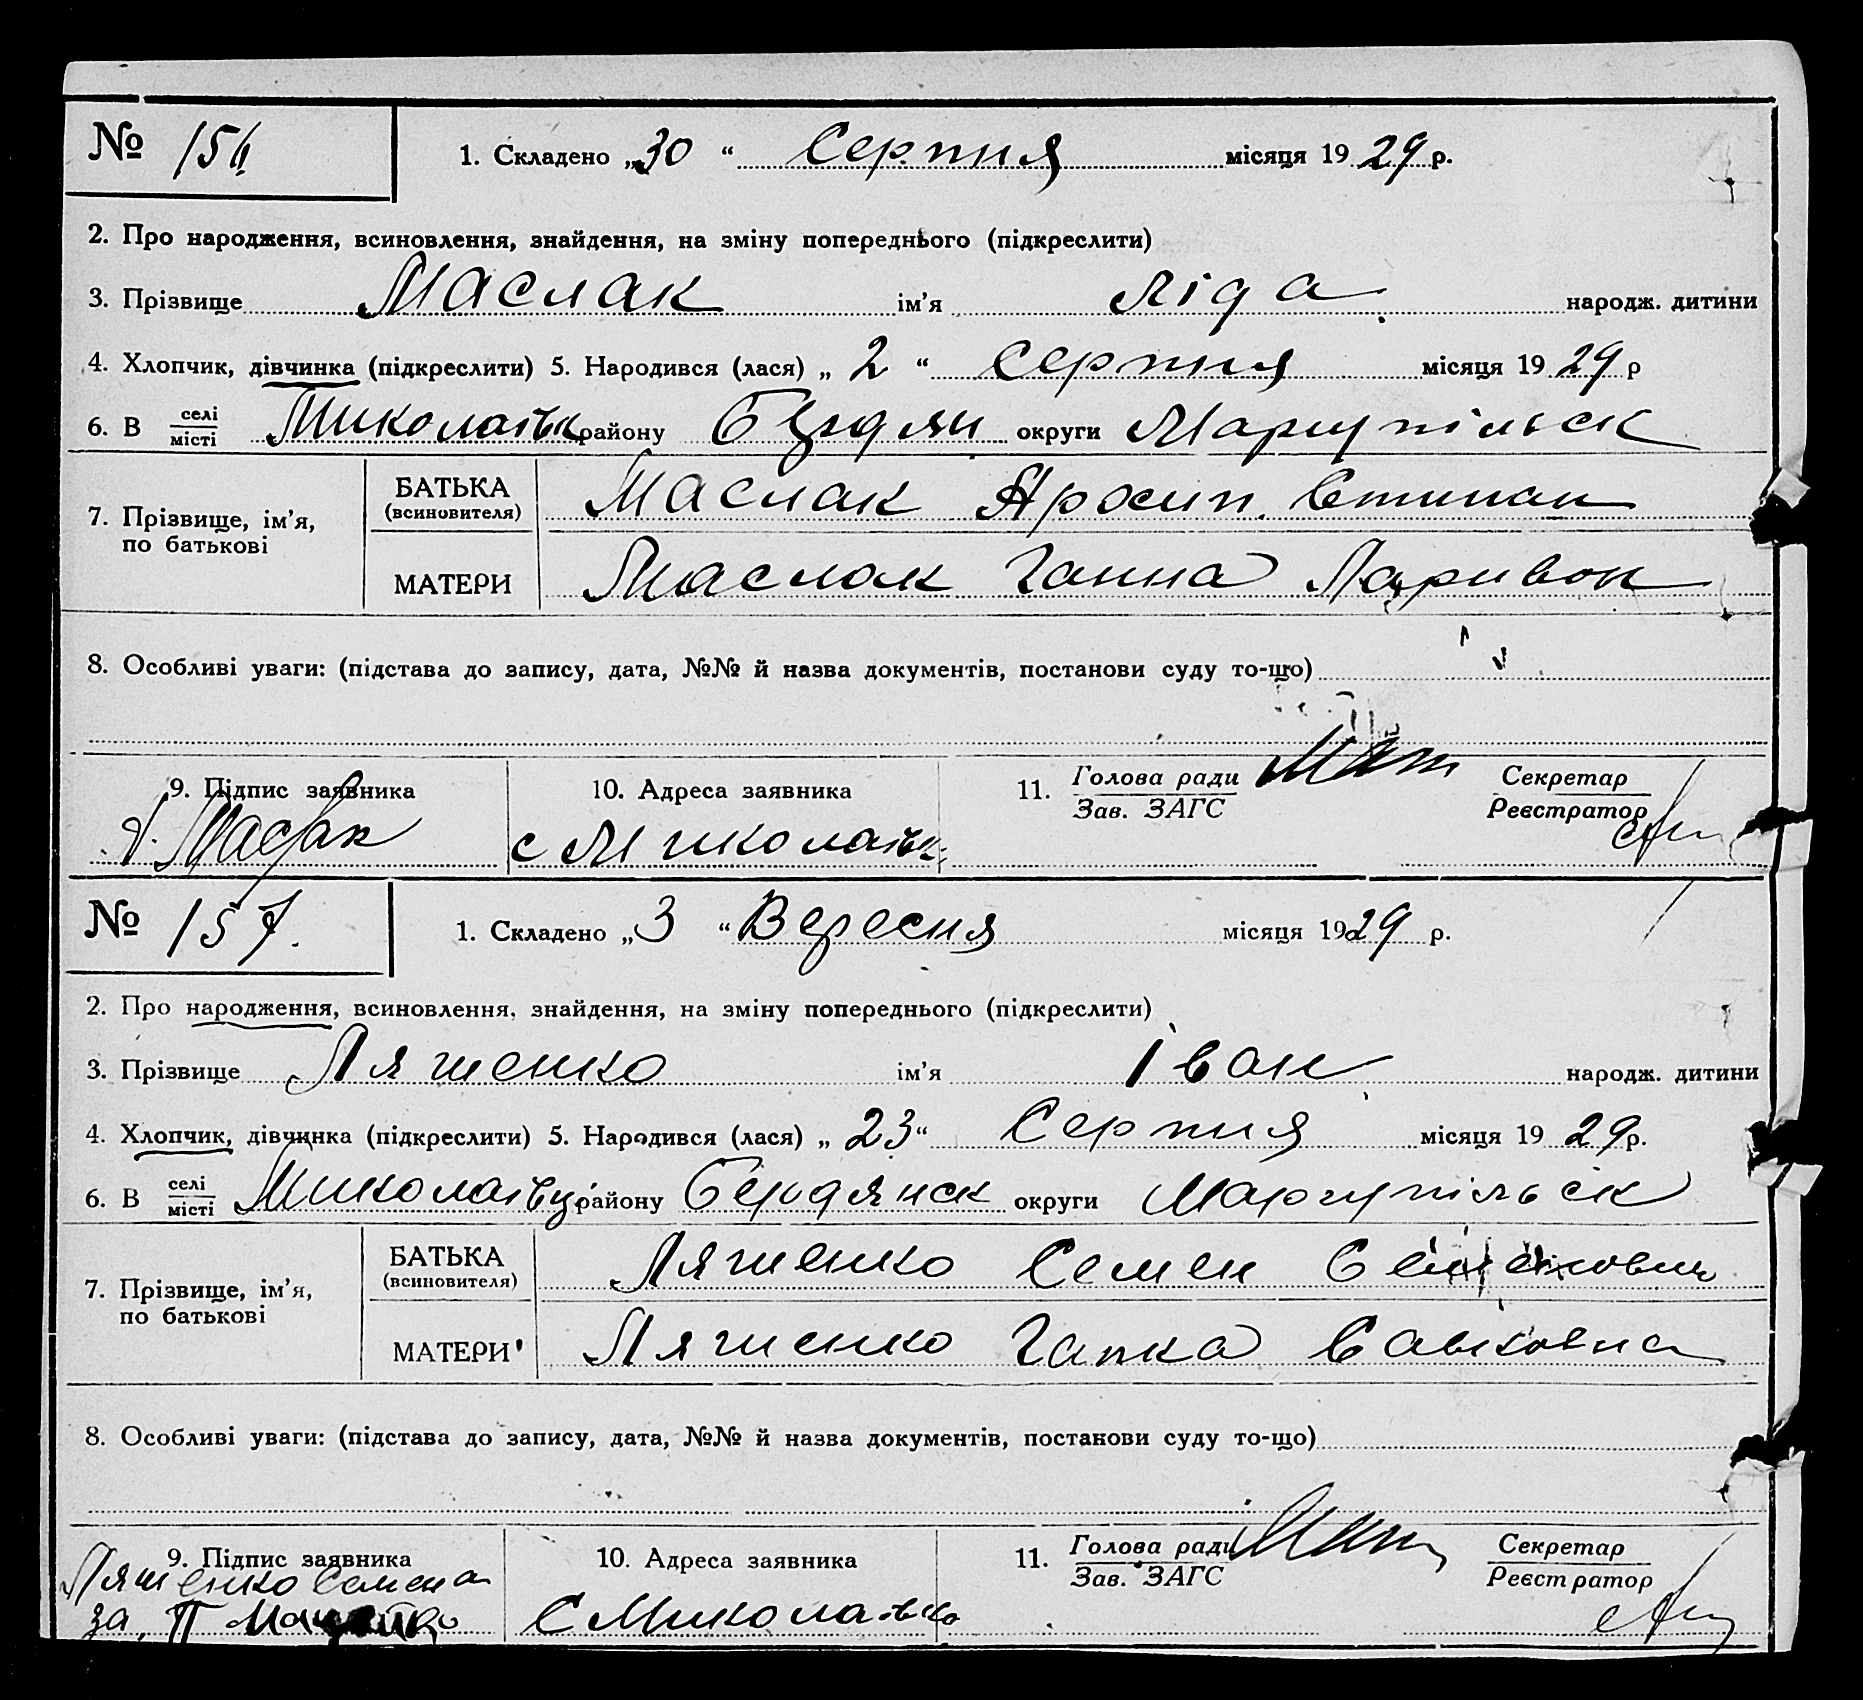 № 156 1. Складено „30“ Серпня місяця 1929 р.
2. Про народження, всиновлення, знайдення, на зміну попереднього (підкреслити)
3. Прізвище Маслак ім’я Ліда народж. дитини
4. Хлопчик, дівчинка (підкреслити) 5. Народився (лася) „2“ Серпня місяця 1929 р
6. В селі місті Миколаївк району Бердян округи Маріупільск
7. Прізвище, ім’я, по батькові
БАТЬКА (всиновителя) Маслак
МАТЕРИ Маслак Ганна Ларивон
8. Особливі уваги: (підстава до запису, дата, №№ й назва документів, постанови суду то-що)
9. Підпис заявника 10. Адреса заявника 11. Голова ради Зав. ЗАГС Секретар Реєстратор
Маслак с Миколаївк
№ 157. 1. Складено „3“ Вересня місяця 1929 р.
2. Про народження, всиновлення, знайдення, на зміну попереднього (підкреслити)
3. Прізвище Ляшенко ім’я Іван народж. дитини
4. Хлопчик, дівчинка (підкреслити) 5. Народився (лася) „23“ Серпня місяця 1929 р.
6. В селі місті Миколаївці району Бердянск округи Маріупільск
7. Прізвище, ім’я, по батькові
БАТЬКА (всиновителя) Ляшенко Семен Семенович
МАТЕРИ Ляшенко Гапка Савковна
8. Особливі уваги: (підстава до запису, дата, №№ й назва документів, постанови суду то-що)
9. Підпис заявника 10. Адреса заявника 11. Голова ради Зав. ЗАГС Секретар Реєстратор
Ляшенко Семена
за. П с Миколаївка